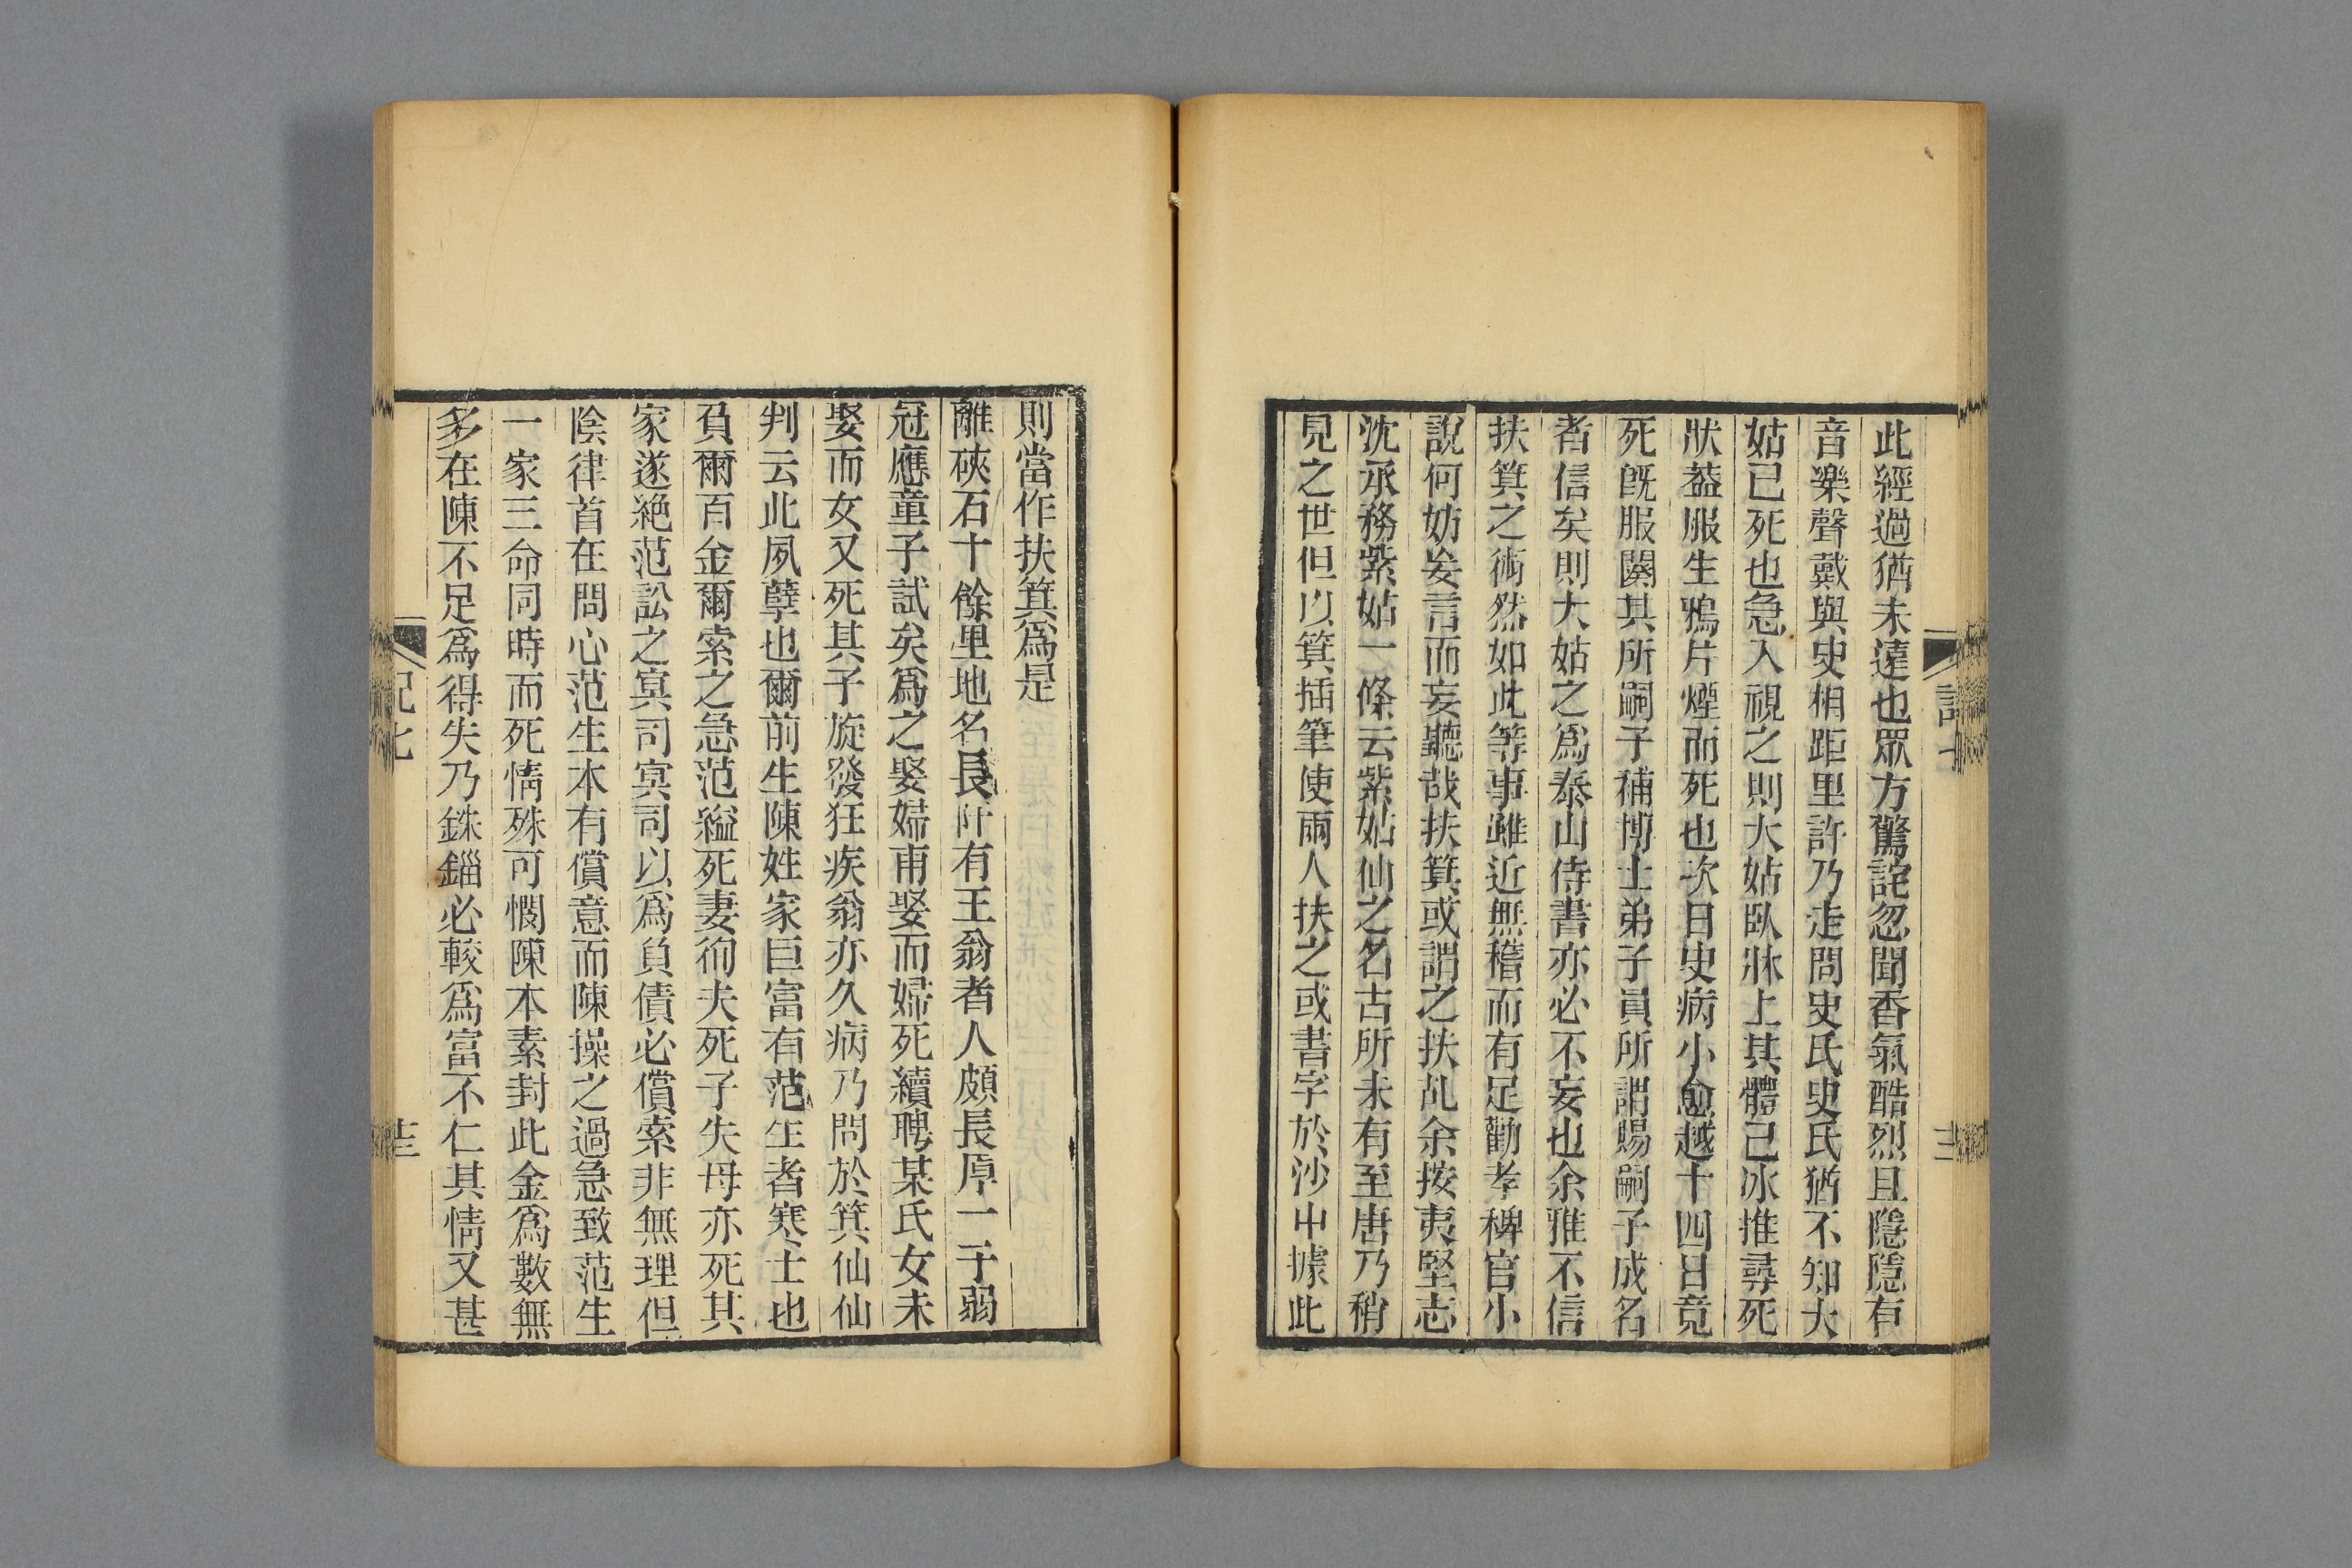 此經過猶未遠也眾方驚詫忽聞香氣酷烈且隱隱有
音樂聲戴與史相距里許乃走問史氏史氏猶不知大
姑已死也急入視之則大姑臥牀上其體已冰推尋死
狀葢服生鴉片煙而死也次日史病小愈越十四日竟
死旣服闋其所嗣子補博士弟子員所謂賜嗣子成名
者信矣則大姑之爲泰山侍書亦必不妄也余雅不信
扶箕之術然如此等事雖近無稽而有足勸孝稗官小
說何妨妄言而妄聽哉扶箕或謂之扶乩余按夷堅志
沈承務紫姑一條云紫姑仙之名古所未有至唐乃稍
見之世但以箕插筆使兩人扶之或書字於沙中據此
則當作扶箕爲是
離硤石十餘里地名長阡有王翁者人頗長厚一子弱
冠應童子試矣爲之娶婦甫娶而婦死續聘某氏女未
娶而女又死其子旋發狂疾翁亦久病乃問於箕仙仙
判云此夙孽也爾前生陳姓家巨富有范生者寒士也
負爾百金爾索之急范縊死妻徇夫死子失母亦死其
家遂絶范訟之冥司冥司以爲負債必償索非無理但
陰律首在問心范生本有償意而陳操之過急致范生
一家三命同時而死情殊可憫陳本素封此金爲數無
多在陳不足爲得失乃銖錙必較爲富不仁其情又甚